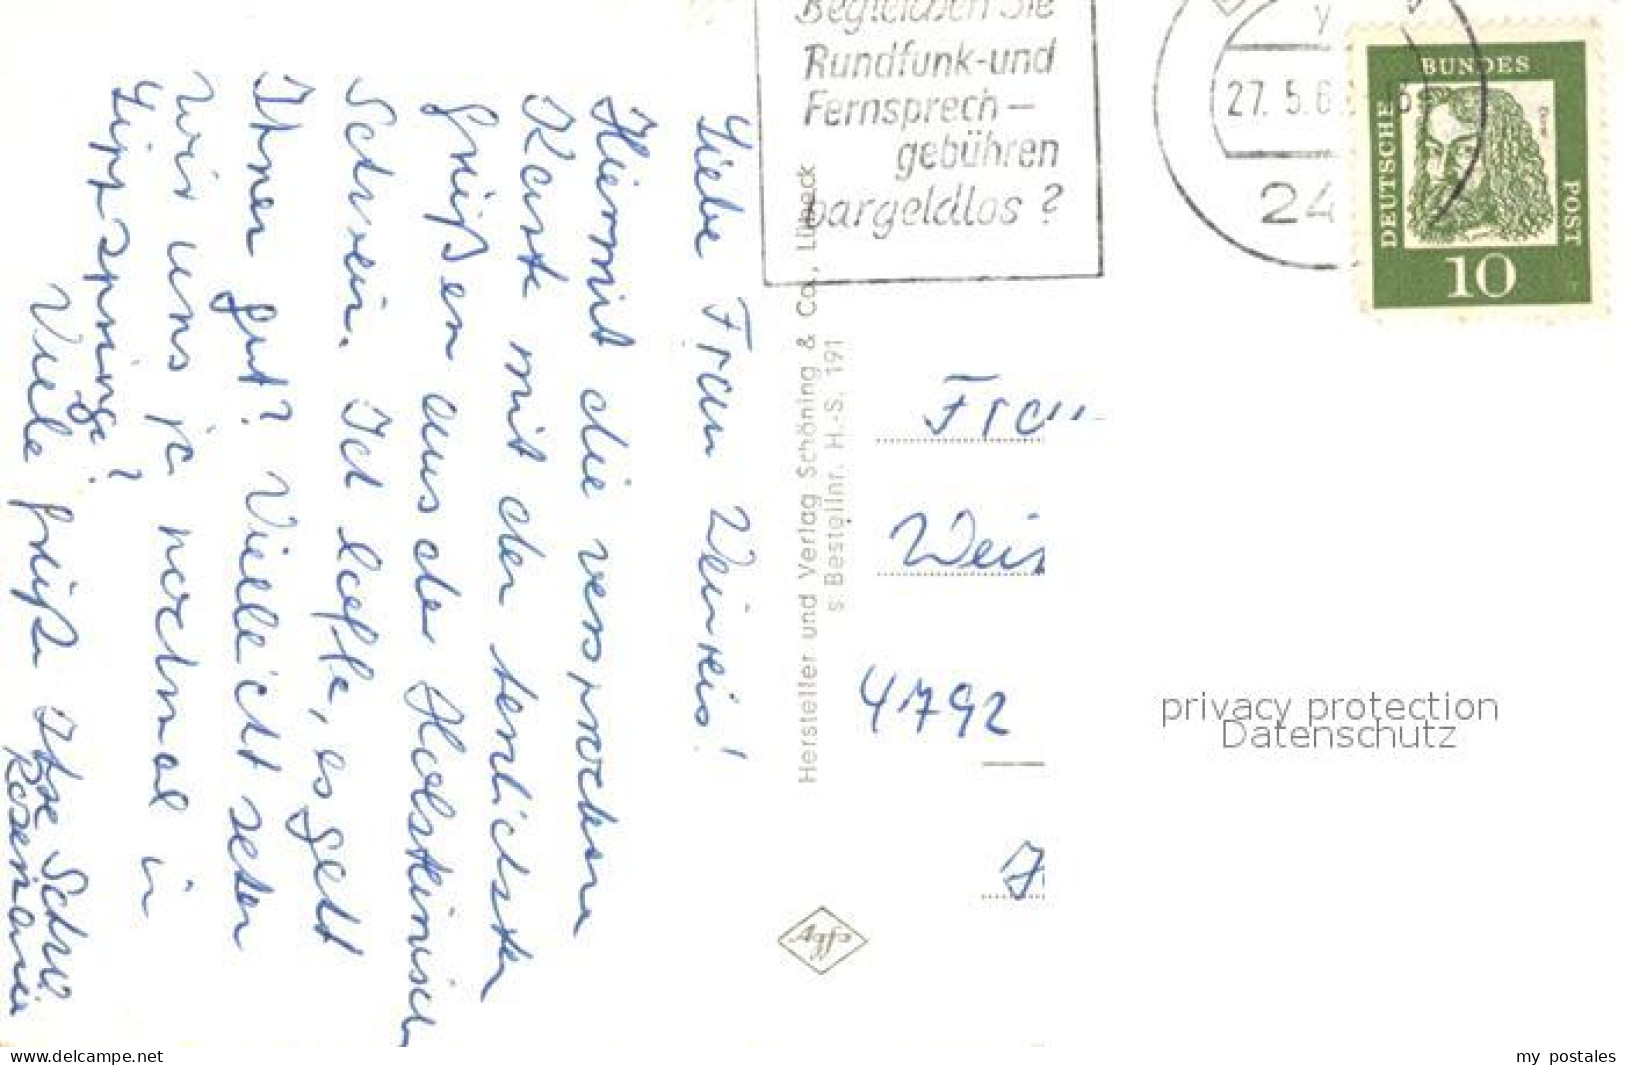 Liebe Frau Weinreis!
Hiermit die versprochene
Karte mit den herzlichsten
Grüßen aus der Holsteinischen
Schweiz. Ich hoffe, es geht
Ihnen gut? Vielleicht sehen
wir uns ja nochmal in
Lippspringe?
Viele Grüße Ihre
Rosemarie
Hersteller und Verlag Schöning & Co., Lübeck
s. Bestellnr. H.-S. 191
Begleichen Sie
Rundfunk-und
Fernsprech-
gebühren
bargeldlos?
27. 5. 6
24
DEUTSCHE
BUNDES
POST
Dürer
10
Frau
Weis
4792
privacy protection
Datenschutz
www.delcampe.net
my postales